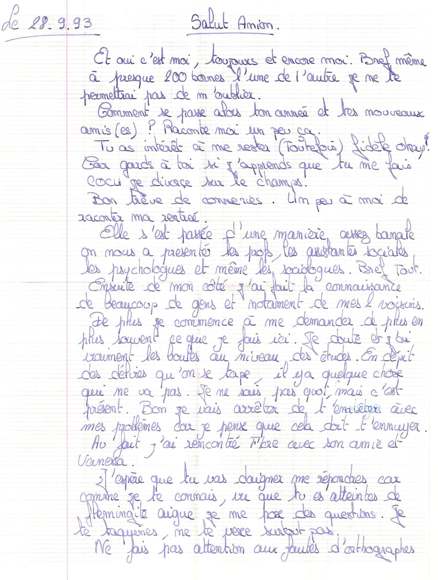 Le 28.9.93
Salut Amion.
Et oui c'est moi, toujours et encore moi. Bref même
à presque 200 bornes l'une de l'autre je ne te
permettrai pas de m'oublier.
Comment se passe alors ton année et tes nouveaux
amis(es) ? Raconte moi un peu ça.
Tu as intérêt à me rester (Toutefois) fidèle okay!
Gar gards à toi si j'apprends que tu me fais
cocu je divorce sur le champs.
Bon trêve de conneries. Un peu à moi de
raconter ma rentrée.
Elle s'est passée d'une manière assez banale
on nous a présenté les profs, les assistantes sociales
les psychologues et même les sociologues. Bref Tout.
Ensuite de mon côté j'ai fait la connaissance
de beaucoup de gens et notament de mes voisins.
De plus je commence à me demander de plus en
plus souvent ce que je fais ici. Je doute et j'ai
vraiment les boules au niveau des études. En dépit
des délires qu'on se tape, il y a quelque chose
qui ne va pas. Je ne sais pas quoi, mais c'est
présent. Bon je vais arrêter de t'embêter avec
mes problèmes car je pense que cela doit t'ennuyer.
Au fait, j'ai rencontré avec son amie et
Vanessa.
J'espère que tu vas daigner me répondre, car
comme je te connais, vu que tu es atteintes de
flemingite aigue je me pose des questions. Je
te taquines, ne te vexe surtout pas.
Ne fais pas attention aux fautes d'orthographes